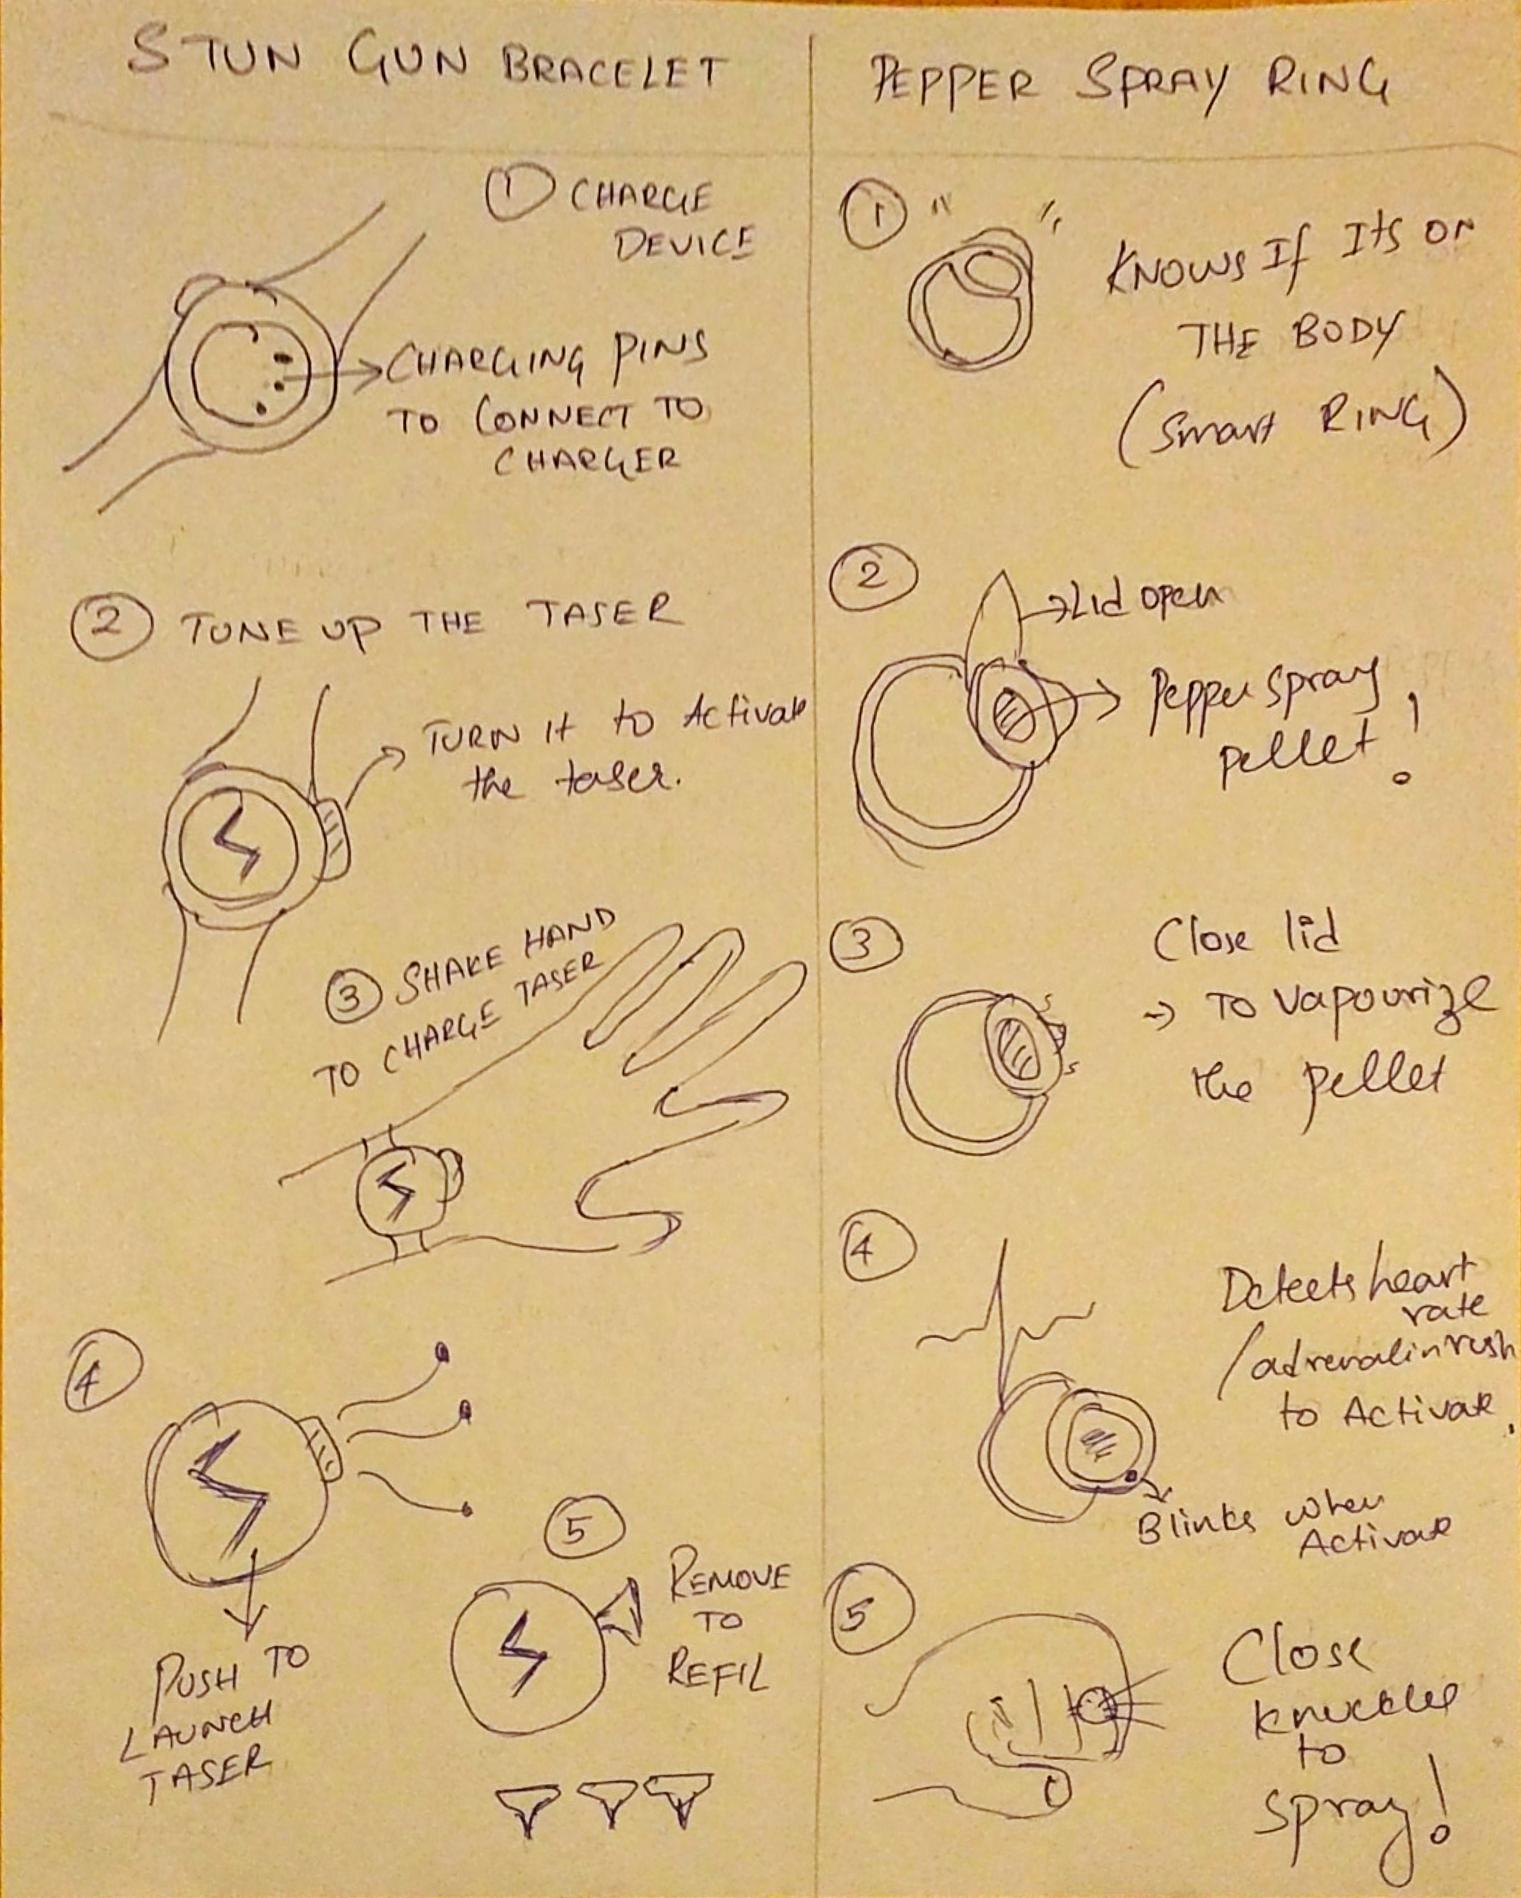 STUN GUN BRACELET
① CHARGE
DEVICE
CHARGING PINS
TO CONNECT TO
CHARGER
② TUNE UP THE TASER
TURN It to Activate
the taser.
③ SHAKE HAND
TO CHARGE TASER
④
PUSH TO
LAUNCH
TASER
⑤
REMOVE
TO
REFIL
PEPPER SPRAY RING
①
KNOWS If Its on
THE BODY
(Smart RING)
②
Lid open
Pepper spray
pellet!
③
Close lid
→ TO vapourize
the pellet
④
Detects heart
rate
/adrenalin rush
to Activate.
Blinks when
Activate
⑤
Close
knuckles
to
spray!